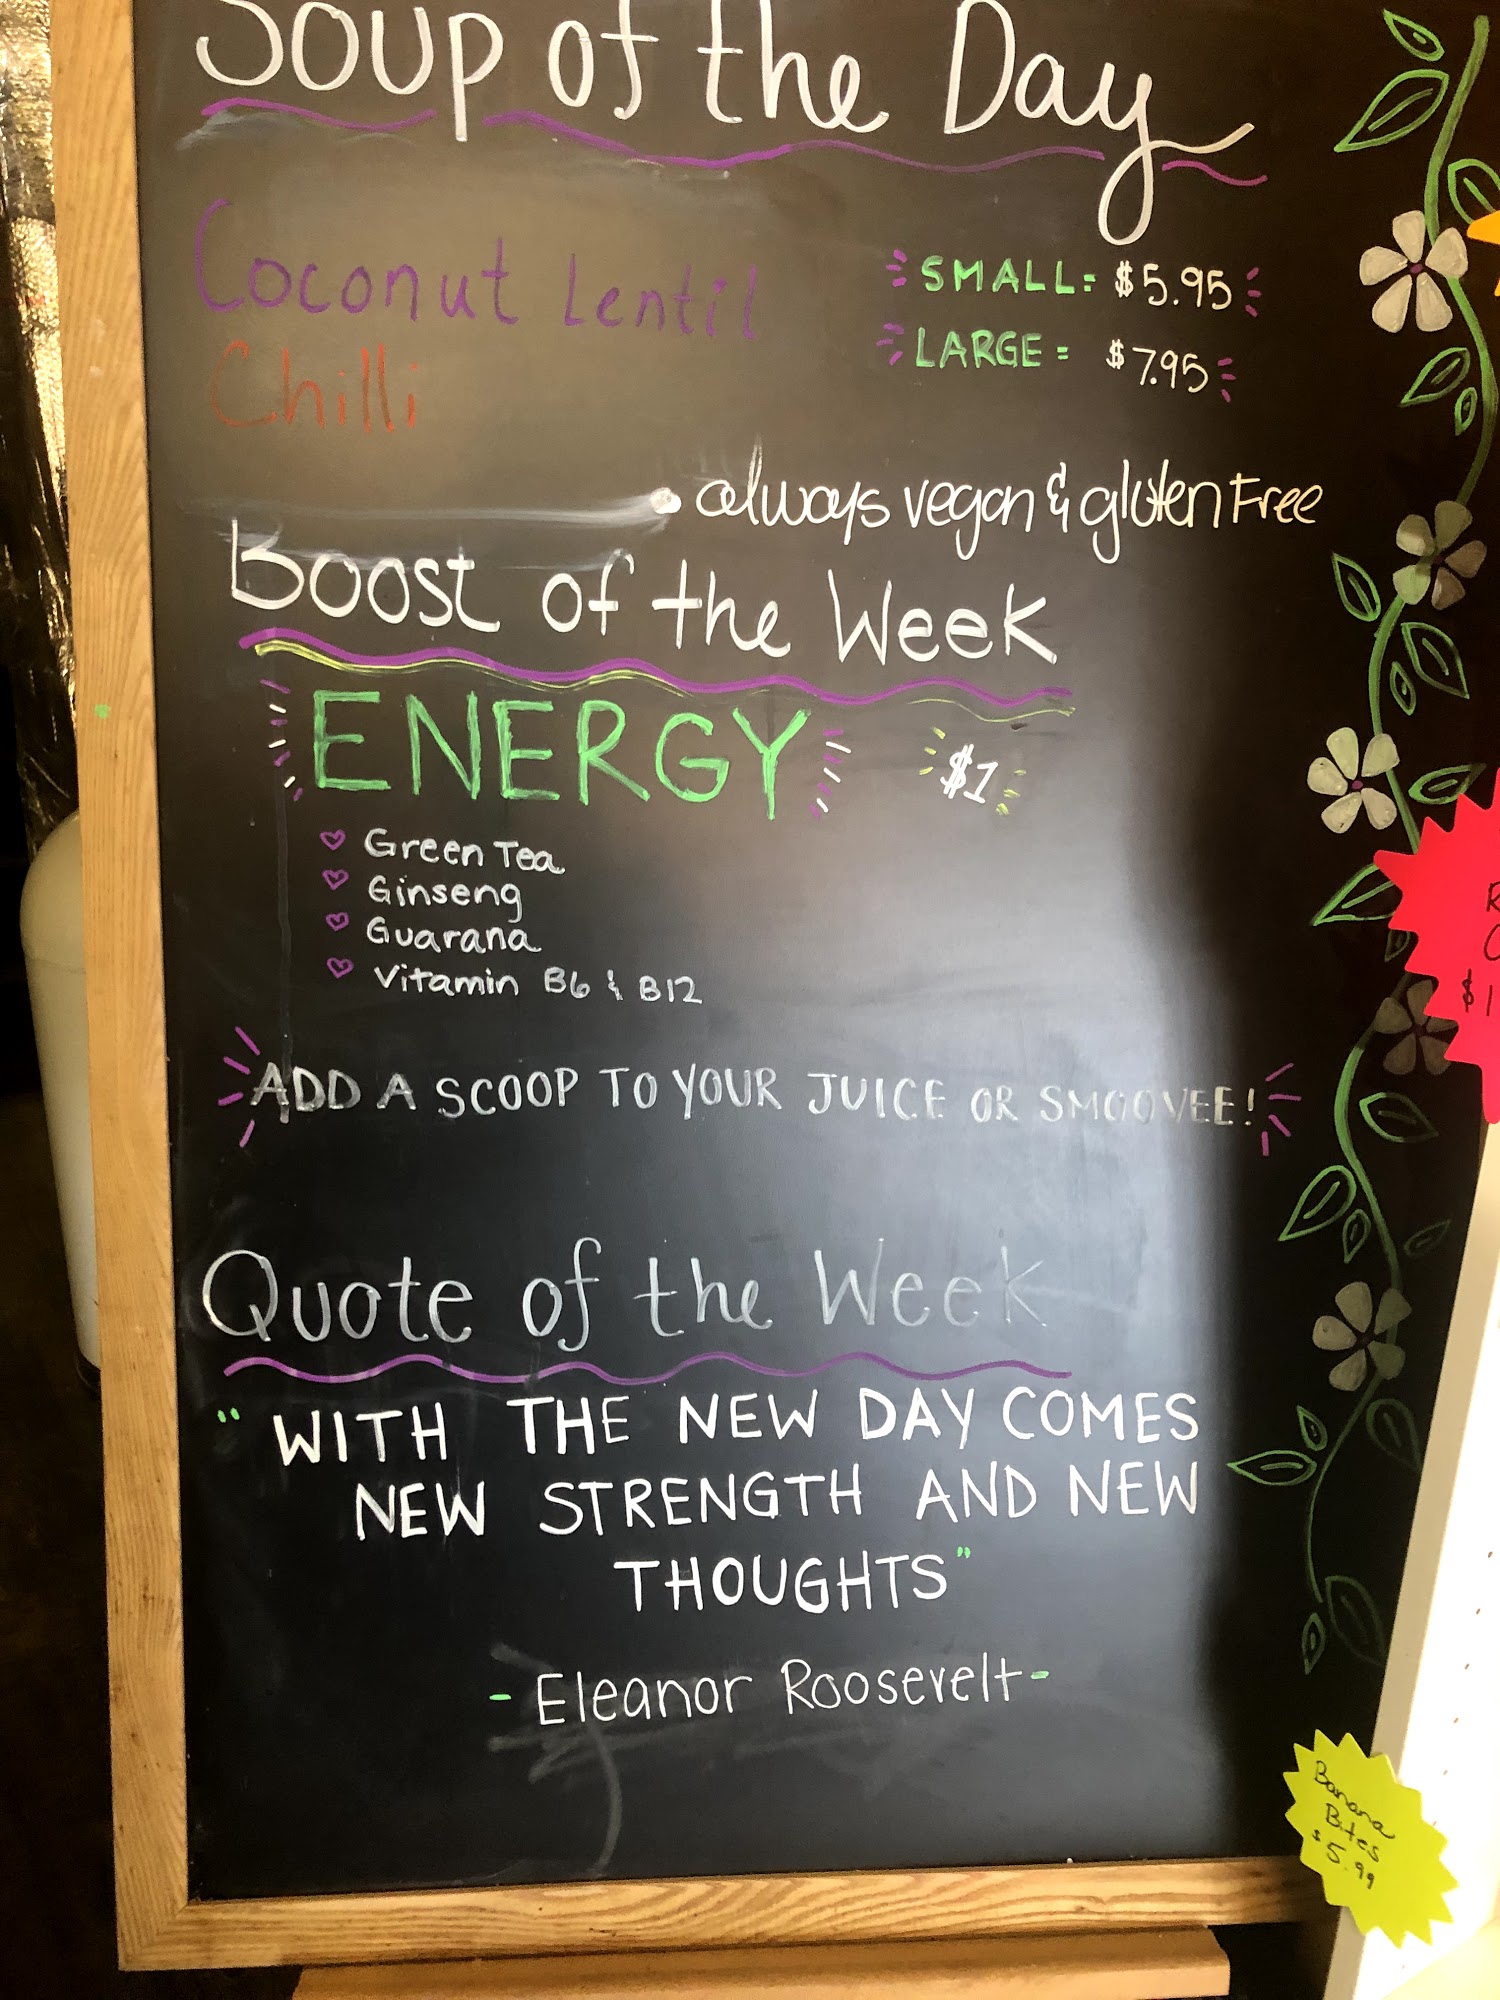 Soup of the Day
Coconut Lentil
Chilli
SMALL= $5.95
LARGE= $7.95
• always vegan & gluten Free
Boost of the Week
ENERGY $1
♡ Green Tea
♡ Ginseng
♡ Guarana
♡ Vitamin B6 & B12
ADD A SCOOP TO YOUR JUICE OR SMOOVEE!
Quote of the Week
"WITH THE NEW DAY COMES
NEW STRENGTH AND NEW
THOUGHTS"
-Eleanor Roosevelt-
Banana
Bites
$5.99